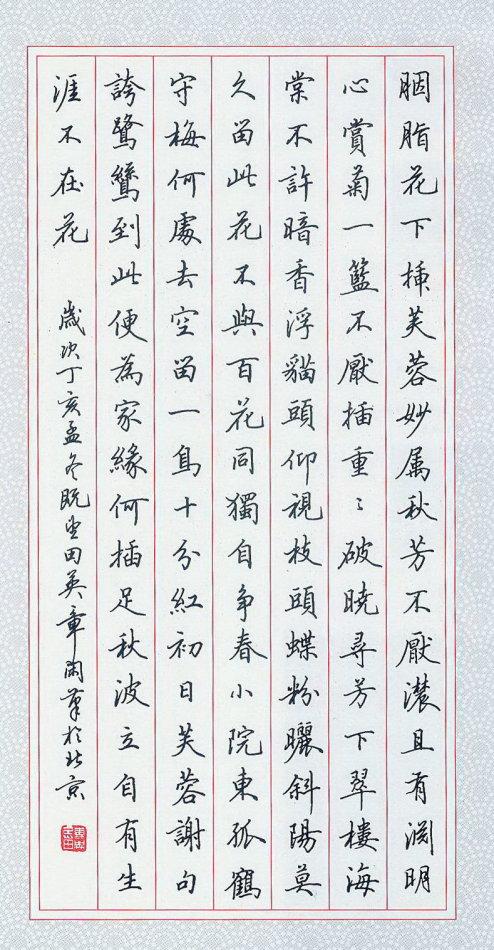 胭脂花下插芙蓉妙属秋芳不厭濃且有渕明
心賞菊一籃不厭插重〻破曉尋芳下翠樓海
棠不許暗香浮貓頭仰視枝頭蝶粉曬斜陽莫
久留此花不與百花同獨自争春小院東孤鶴
守梅何處去空留一鳥十分紅初日芙蓉謝句
誇鷺鷥到此便為家緣何插足秋波立自有生
涯不在花 歲次丁亥孟冬既望田英章閑筆於北京